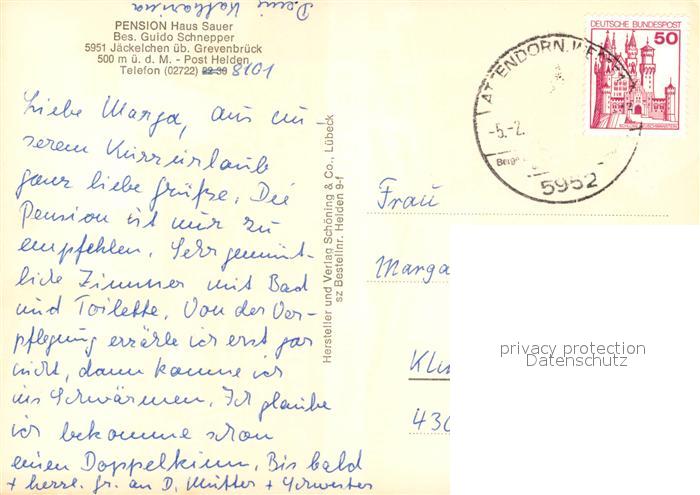 Deine Katharina
PENSION Haus Sauer
Bes. Guido Schnepper
5951 Jäckelchen üb. Grevenbrück
500 m ü. d. M. - Post Helden
Telefon (02722) 8101
Liebe Marga, aus un-
serem Kurzurlaub
ganz liebe Grüße. Die
Pension ist nur zu
empfehlen. Sehr gemüt-
liche Zimmer mit Bad
und Toilette. Von der Ver-
pflegung erzähle ich erst gar
nicht, dann komme ich
ins Schwärmen. Ich glaube
ich bekomme schon
einen Doppelkinn. Bis bald
+ herzl. Gr. an D. Mutter + Schwester
Hersteller und Verlag Schöning & Co., Lübeck
sz Bestellnr. Helden 9-f
DEUTSCHE BUNDESPOST
50
ATTENDORN, WESTF
-5.-2.
5952
Frau
Marga
privacy protection
Datenschutz
Kli
430